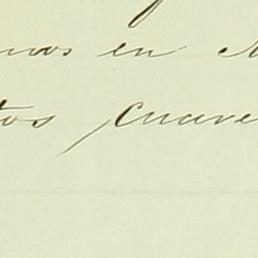 mos en
tos, cuare